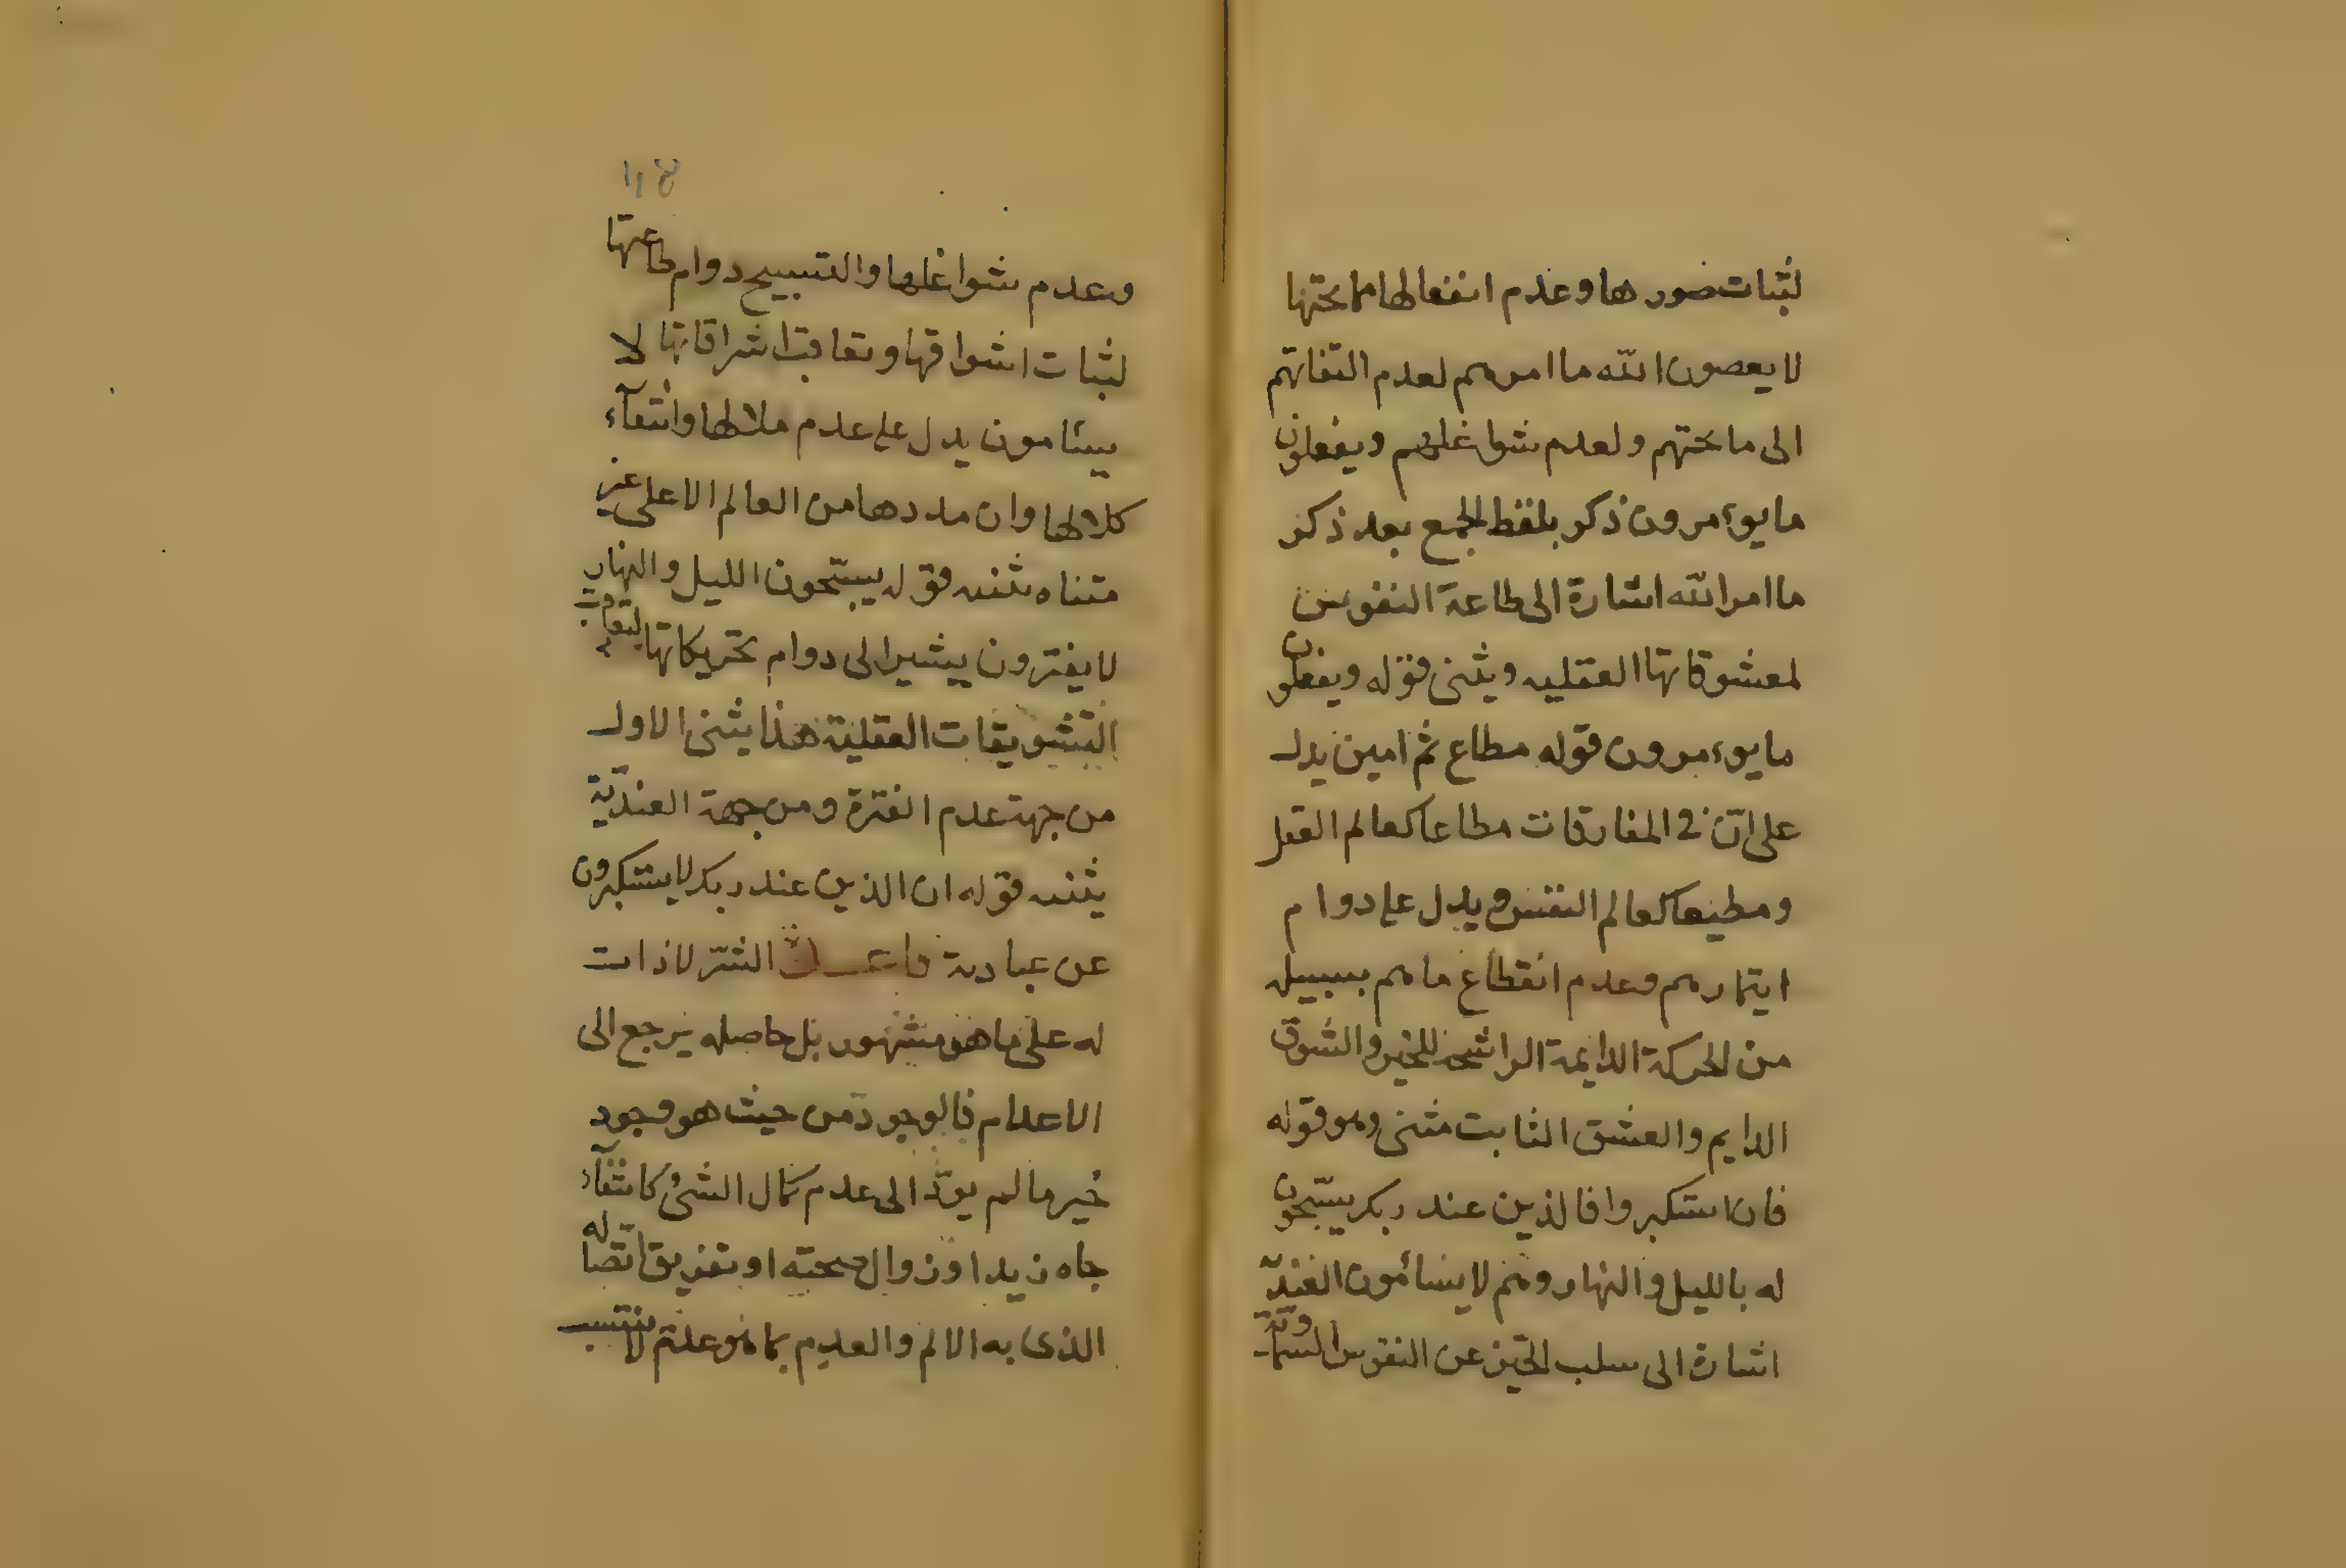 لثبات صورها وعدم انفعالها مما تحتها
لا يعصون الله ما امرهم لعدم التفاتهم
الى ما تحتهم ولعدم شواغلهم ويفعلون
ما يوءمرون ذكر بلفظ الجمع بعد ذكر
ما امر الله اشارة الى طاعة النفوس
لمعشوقاتها العقليه ويثنى قوله ويفعلون
ما يوءمرون قوله مطاع ثم امين يدل
على انّ فى المفارقات مطاعا كعالم العقل
ومطيعا كعالم النفس ويدل على دوام
ايتمارهم وعدم انقطاع ما هم بسبيله
من الحركة الدايمة الراشحه للخير والشوق
الدايم والعشق الثابت مثنى وهو قوله
فان استكبروا فالذين عند ربك يسبّحون
له بالليل والنهار وهم لا يسأمون العنديّة
اشارة الى سلب الحيّز عن النفوس السماوية
وعدم شواغلها والتسبيح دوام طاعتها
لثبات اشواقها وتعاقب اشراقاتها لا
يسئامون يدل على عدم ملالها وانتفآء
كلالها وان مددها من العالم الاعلى غير
متناه يثنيه قوله يسبّحون الليل والنهار
لا يفترون يشير الى دوام تحريكاتها لتعاقب
التشويقات العقلية هذا يثنى الاول
من جهة عدم الفترة ومن جهة العنديّة
يثنيه قوله ان الذين عند ربك لا يستكبرون
عن عبادته الشرّ لا ذات
له على ما هو مشهور بل حاصله يرجع الى
الاعدام فالوجود من حيث هو وجود
خير ما لم يودّ الى عدم كمال الشئ كانتفآء
جاه زيد او زوال صحته او تفريق اتّصاله
الذى به الالم والعدم بما هو عدم لا ينتسب